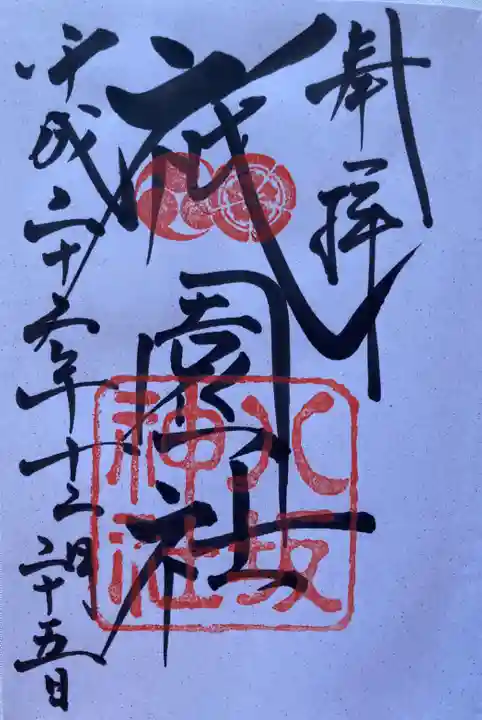 奉拝
祇園社
八坂
神社
平成二十六年十二月二十五日